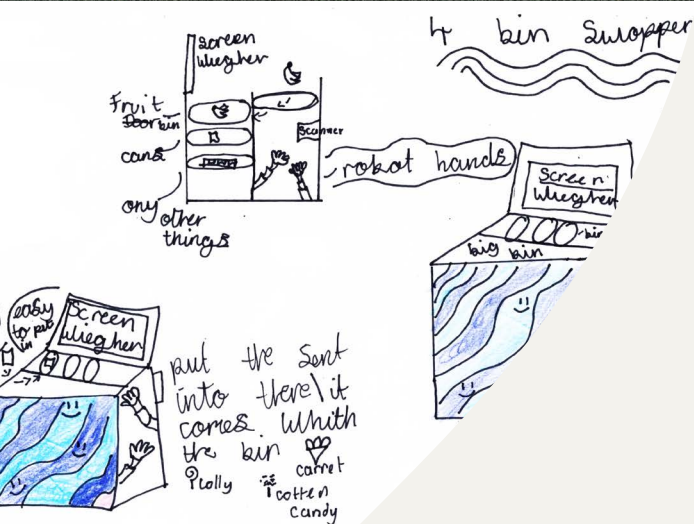 4 bin Swopper
Screen
Wiegher
Fruit
bin
cans
any
other
things
Scanner
robot hands
Screen
Wiegher
bin
big bin
easy
to put
in
Screen
Wiegher
put the Sent
into there\it
comes Whith
the bin
carret
lolly
cotten
candy